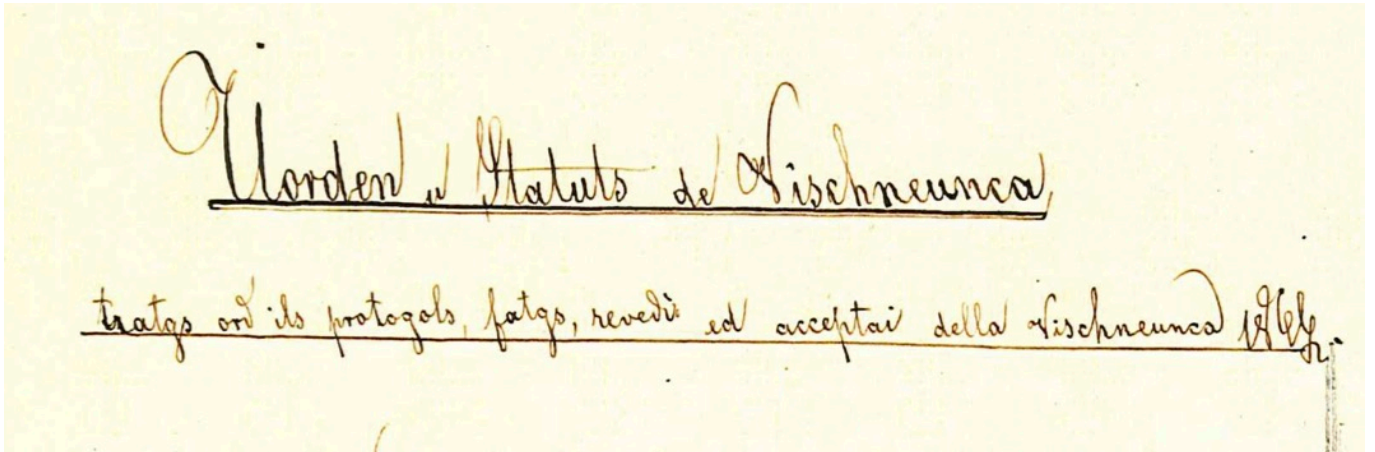 Uorden u Statuts de Vischneunca
tratgs ord ils protogols, fatgs, revedi ed acceptai della Vischneunca